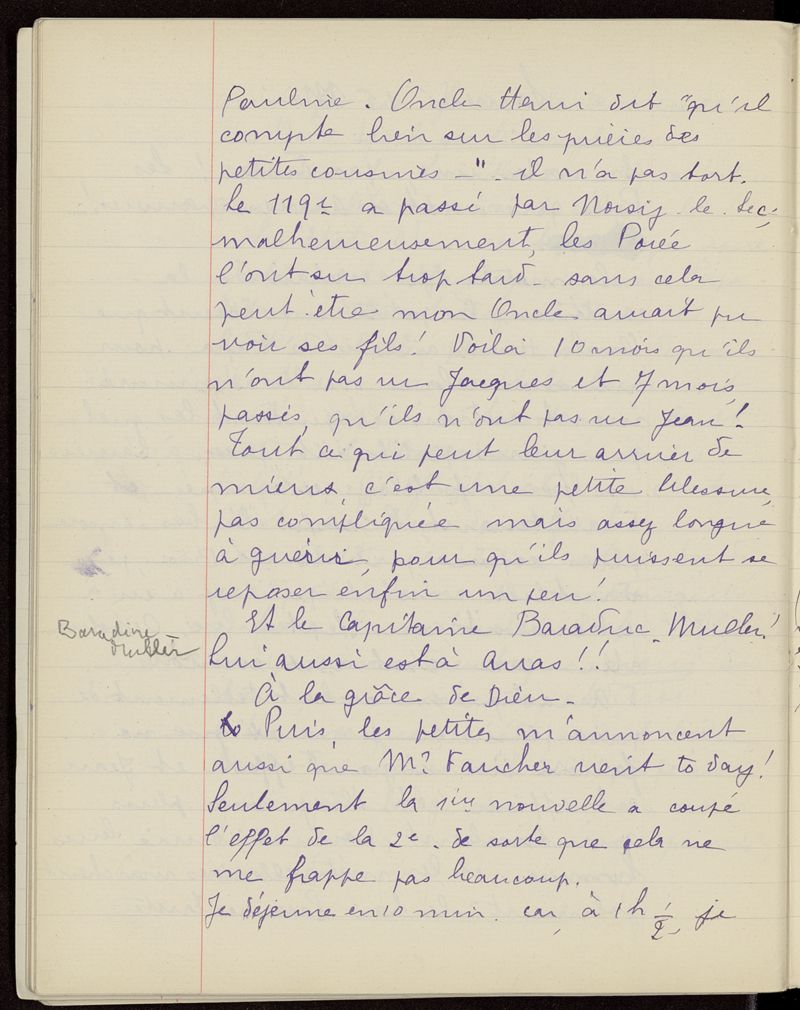 Pauline. Oncle Henri dit "qu'il
compte bien sur les prières des
petites cousines -" - il n'a pas tort.
Le 119e a passé par Noisy-le-Sec;
malheureusement, les Porée
l'ont su trop tard - sans cela
peut-être mon Oncle aurait pu
voir ses fils! Voilà 10 mois qu'ils
n'ont pas vu Jacques et 7 mois,
passés, qu'ils n'ont pas vu Jean!
Tout ce qui peut leur arriver de
mieux, c'est une petite blessure,
pas compliquée mais assez longue
à guérir, pour qu'ils puissent se
reposer enfin un peu!
Et le Capitaine Baraduc-Muller!
Baraduc
Muller
Lui aussi est à Arras!!
À la grâce de Dieu -
Puis, les petites m'annoncent
aussi que Mr Faucher vient to day!
Seulement la 1ère nouvelle a coupé
l'effet de la 2e - de sorte que cela ne
me frappe pas beaucoup.
Je déjeune en 10 min. car, à 1h 1/2, je